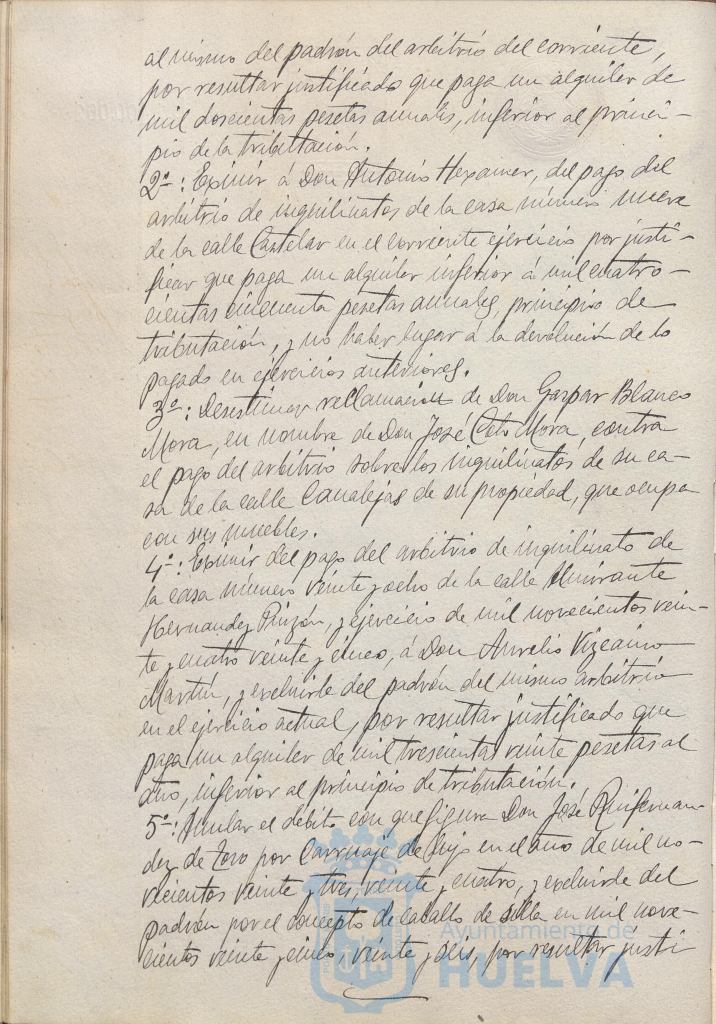 al mismo del padrón del arbitrio del corriente,
por resultar justificado que paga un alquiler de
mil doscientas pesetas anuales, inferior al princi-
pio de la tributación.
2º: Eximir á Don Antonio Hexamer, del pago del
arbitrio de inquilinatos de la casa número nueve
de la calle Castelar en el corriente ejercicio por justi-
ficar que paga un alquiler inferior á mil cuatro-
cientas cincuenta pesetas anuales, principio de
tributación, y no haber lugar á la devolución de lo
pagado en ejercicios anteriores.
3º: Desestimar reclamación de Don Gaspar Blanco
Mora, en nombre de Don José Mora, contra
el pago del arbitrio sobre los inquilinatos de su ca-
sa de la calle Canalejas de su propiedad, que ocupa
con sus muebles.
4º: Eximir del pago del arbitrio de inquilinato de
la casa número veinte y ocho de la calle Almirante
Hernandez Pinzón, y ejercicio de mil novecientos vein-
te y cuatro veinte y cinco, á Don Aurelio Vizcaino
Martín, y excluirle del padrón del mismo arbitrio
en el ejercicio actual, por resultar justificado que
paga un alquiler de mil trescientas veinte pesetas al
año, inferior al principio de tributación.
5º: Anular el débito con que figura Don José Ruifernan-
dez de Toro por Carruaje de lujo en el año de mil no-
vecientos veinte y tres, veinte y cuatro, y excluirle del
padrón por el concepto de caballo de silla en mil nove-
cientos veinte y cinco, veinte y seis, por resultar justi-
Ayuntamiento de
HUELVA